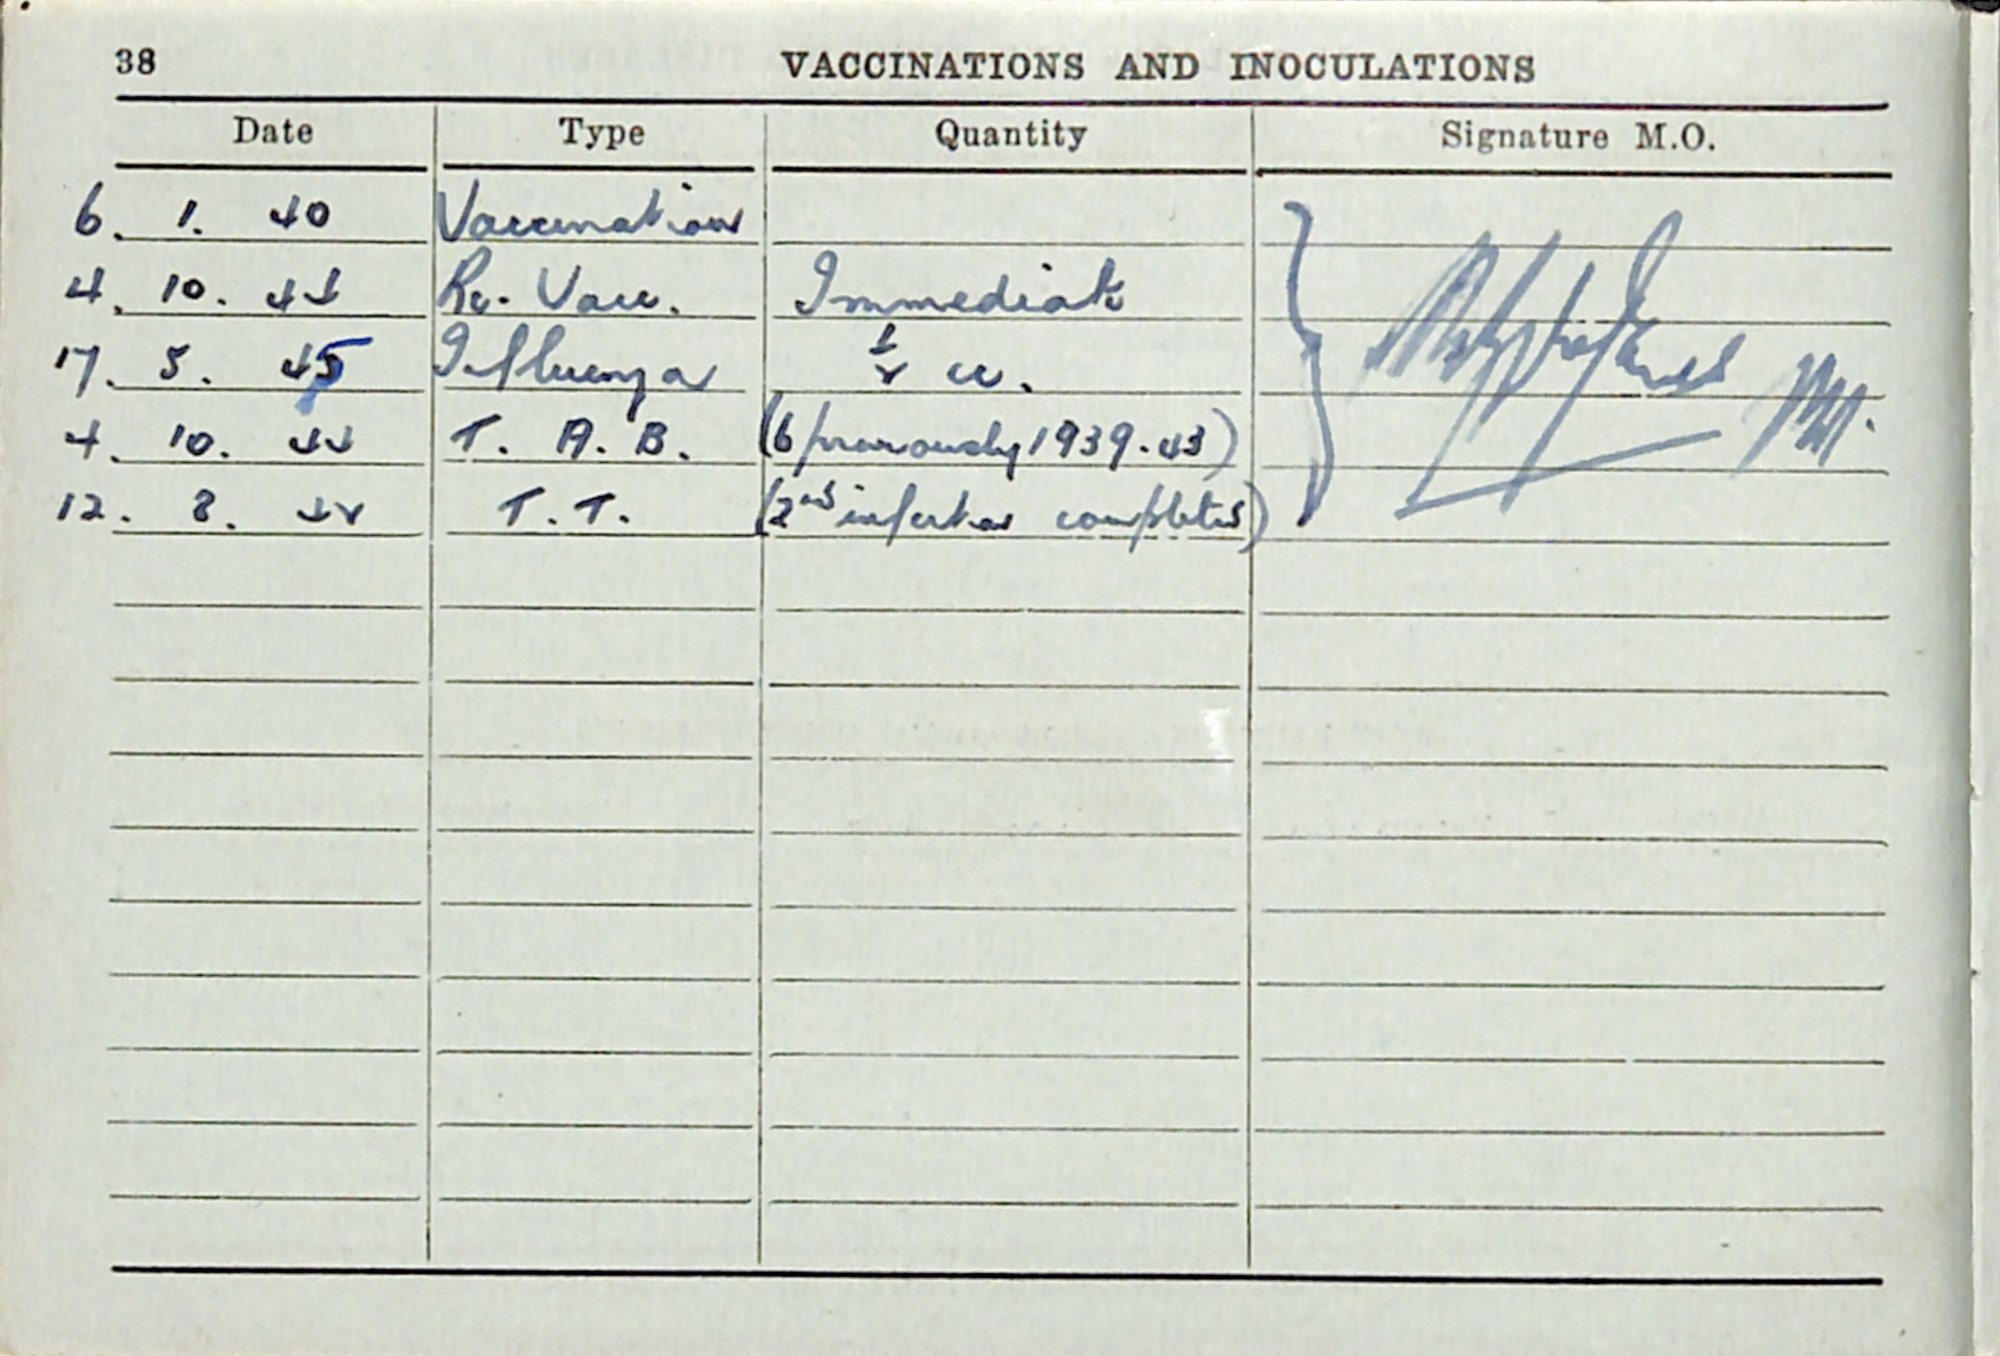 38 VACCINATIONS AND INOCULATIONS
Date Type Quantity Signature M.O.
6. 1. 40 Vaccination
4. 10. 44 Re. Vacc. Immediate
17. 5. 45 Influenza 1/2 cc.
4. 10. 44 T. A. B. (6 previously 1939.43)
12. 8. T.T. (2nd injection completed)